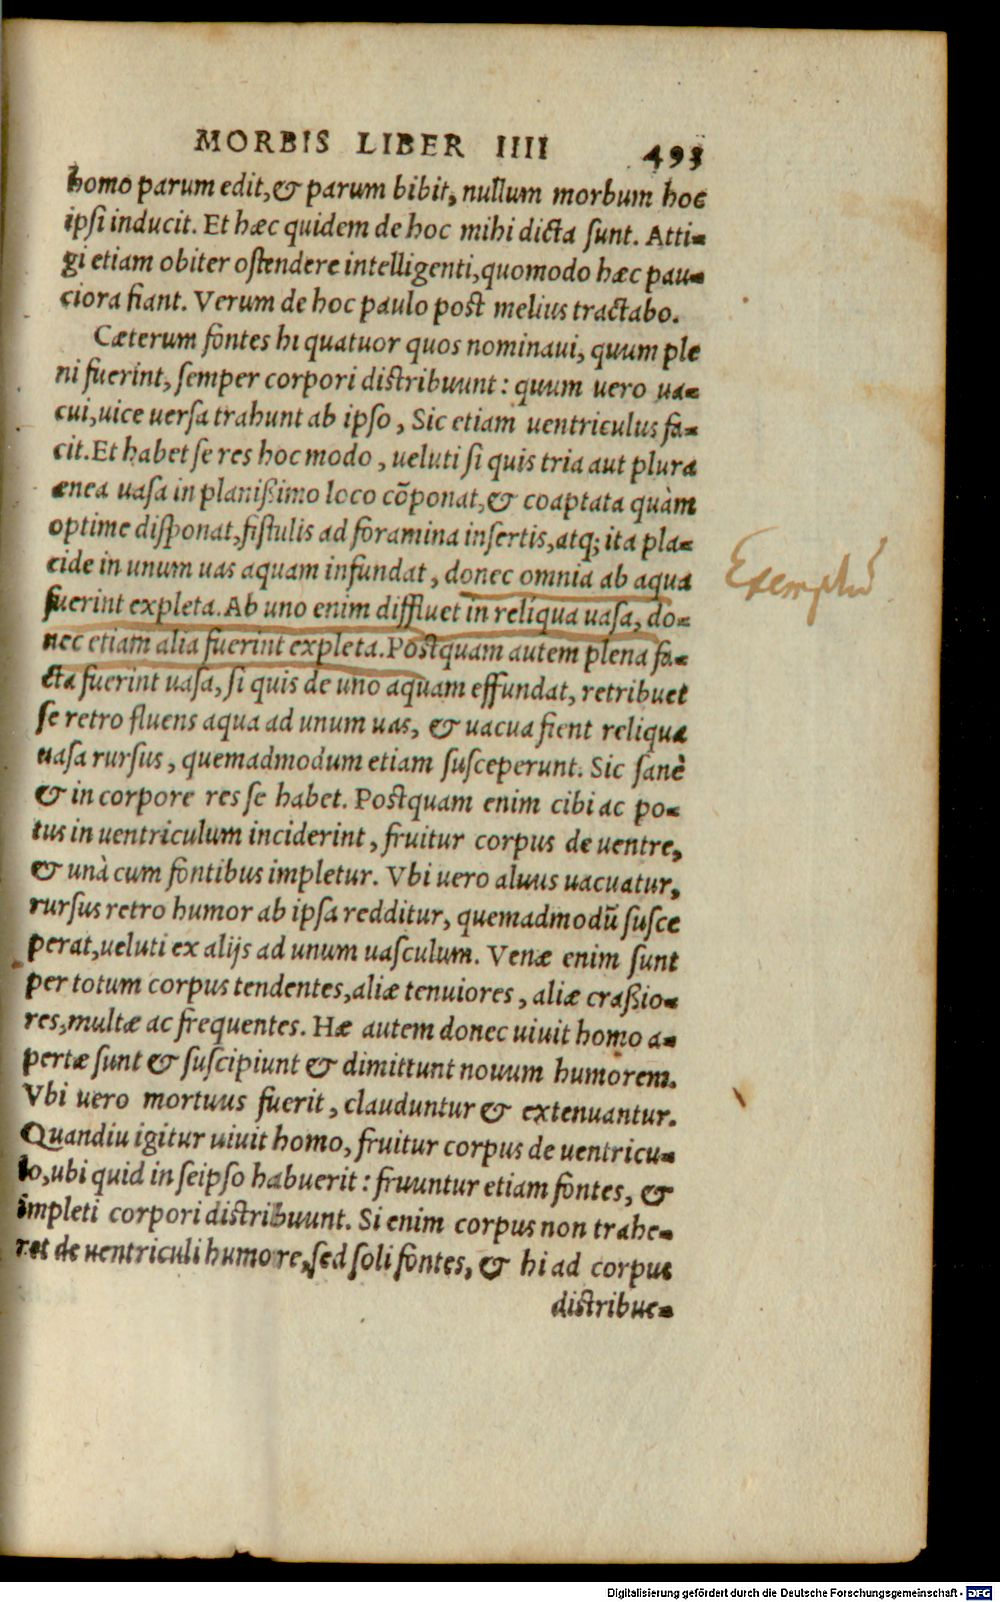 MORBIS LIBER IIII 493
homo parum edit,& parum bibit, nullum morbum hoc
ipsi inducit. Et hæc quidem de hoc mihi dicta sunt. Atti-
gi etiam obiter ostendere intelligenti,quomodo hæc pau-
ciora fiant. Verum de hoc paulo post melius tractabo.
Cæterum fontes hi quatuor quos nominaui, quum ple
ni fuerint, semper corpori distribuunt: quum uero ua-
cui,uice uersa trahunt ab ipso, Sic etiam uentriculus fa-
cit.Et habet se res hoc modo, ueluti si quis tria aut plura
ænea uasa in planißimo loco cōponat,& coaptata quàm
optime disponat,fistulis ad foramina insertis,atq; ita pla-
cide in unum uas aquam infundat, donec omnia ab aqua
fuerint expleta. Ab uno enim diffluet in reliqua uasa, do-
nec etiam alia fuerint expleta. Postquam autem plena fa-
cta fuerint uasa, si quis de uno aquam effundat, retribuet
se retro fluens aqua ad unum uas, & uacua fient reliqua
uasa rursus, quemadmodum etiam susceperunt. Sic sanè
& in corpore res se habet. Postquam enim cibi ac po-
tus in uentriculum inciderint, fruitur corpus de uentre,
& unà cum fontibus impletur. Vbi uero aluus uacuatur,
rursus retro humor ab ipsa redditur, quemadmodū susce
perat,ueluti ex alijs ad unum uasculum. Venæ enim sunt
per totum corpus tendentes,aliæ tenuiores, aliæ craßio-
res,multæ ac frequentes. Hæ autem donec uiuit homo a-
pertæ sunt & suscipiunt & dimittunt nouum humorem.
Vbi uero mortuus fuerit, clauduntur & extenuantur.
Quandiu igitur uiuit homo, fruitur corpus de uentricu-
lo,ubi quid in seipso habuerit: fruuntur etiam fontes, &
impleti corpori distribuunt. Si enim corpus non trahe-
ret de uentriculi humore,sed soli fontes, & hi ad corpus
distribue-
Exemplū
Digitalisierung gefördert durch die Deutsche Forschungsgemeinschaft - DFG